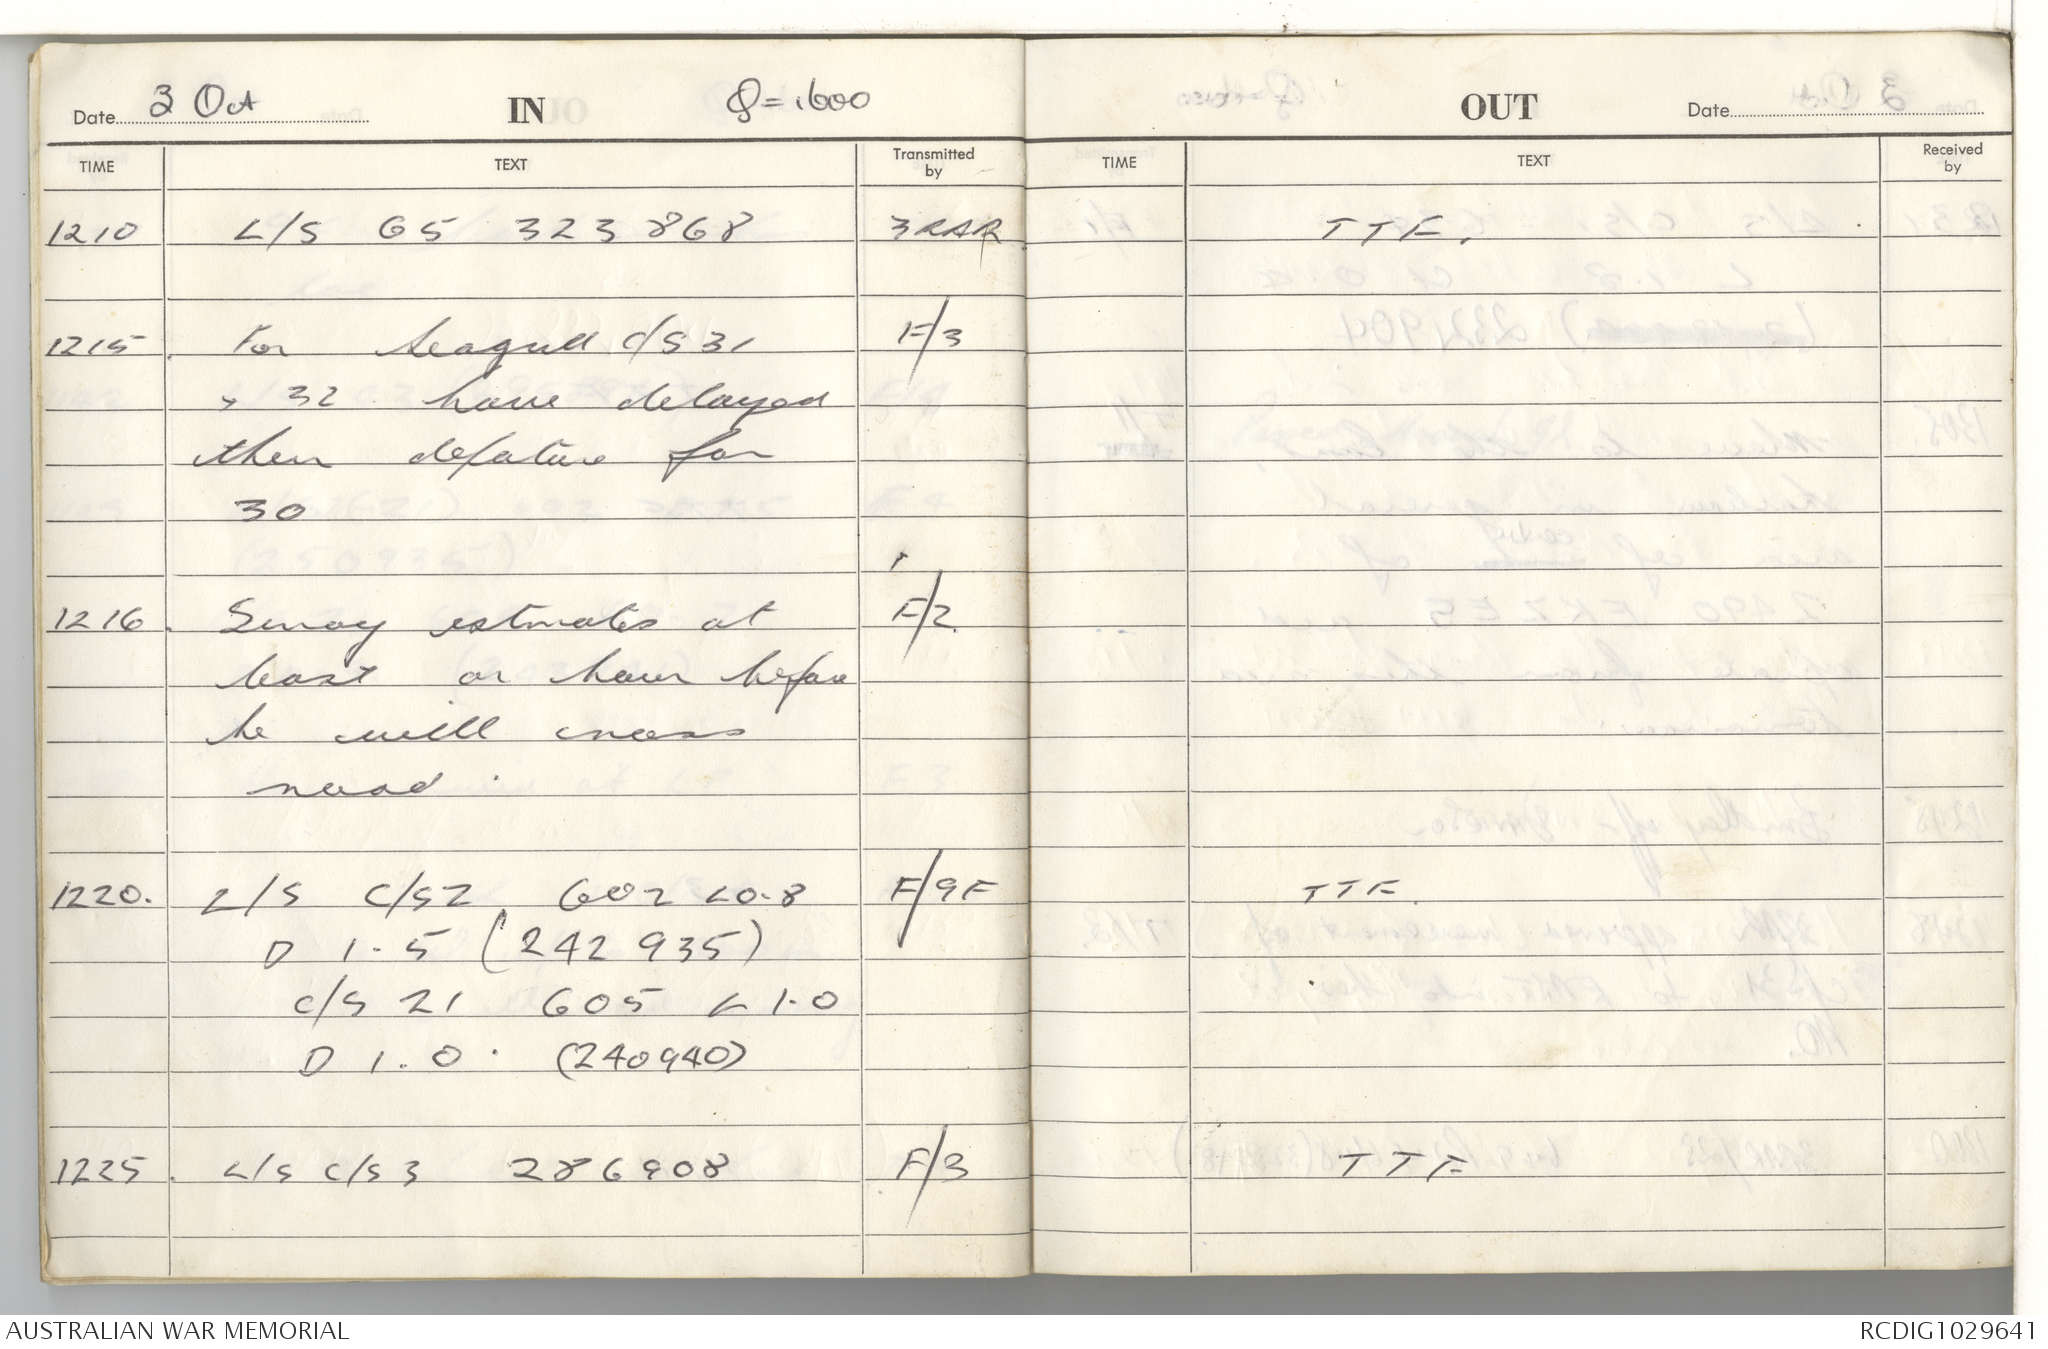 Date 3 Oct IN Q = 1600
TIME TEXT Transmitted by
1210 L/S G5 323 868 3RAR
1215. For Seagull C/S 31 F/3
+ 32 have delayed
their defature for
30
1216. Sunray estimates at F/2
least an hour before
he will cross
road.
1220. L/S C/S2 602 L0.8 F/9F
D 1.5 (242 935)
C/S 21 605 L 1.0
D 1.0. (240940)
1225. L/S C/S 3 286908 F/3
OUT Date
TIME TEXT Received by
TTF.
TTF.
TTF
AUSTRALIAN WAR MEMORIAL RCDIG1029641